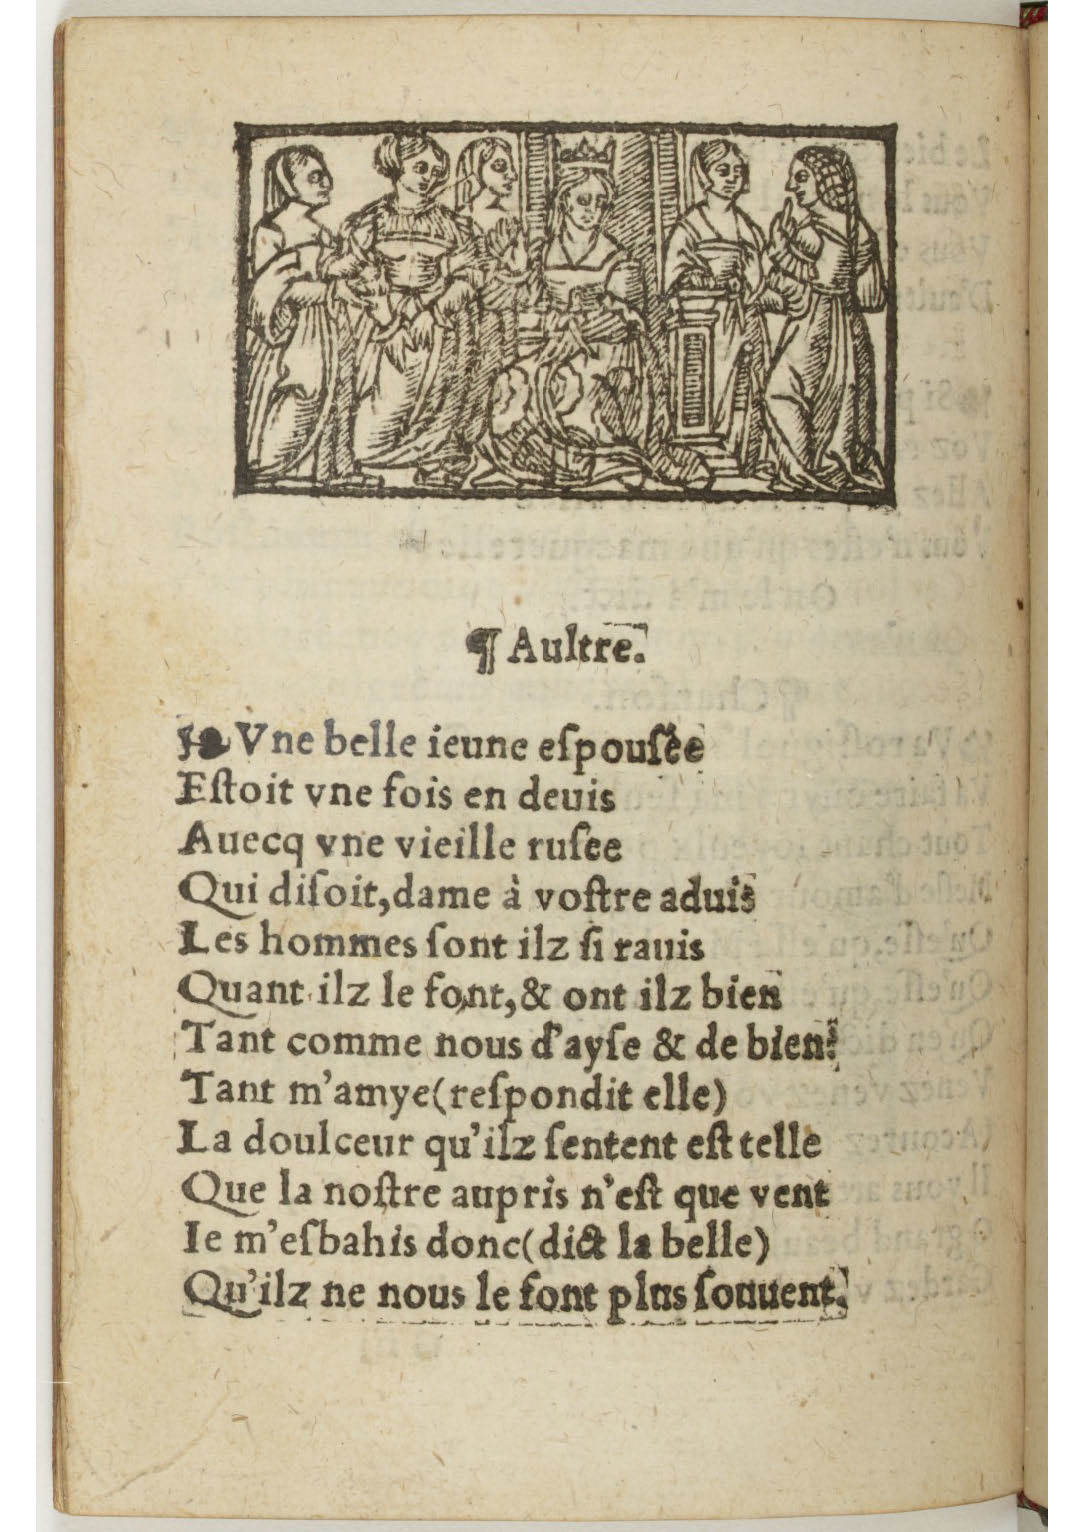 ¶ Aultre.
❧ Vne belle ieune eſpouſée
Eſtoit vne fois en deuis
Auecq vne vieille ruſee
Qui diſoit, dame à voſtre aduis
Les hommes ſont ilz ſi rauis
Quant ilz le font, & ont ilz bien
Tant comme nous d'ayſe & de bien?
Tant m'amye (reſpondit elle)
La doulceur qu'ilz ſentent eſt telle
Que la noſtre aupris n'eſt que vent
Ie m'eſbahis donc (dict la belle)
Qu'ilz ne nous le font plus ſouuent.